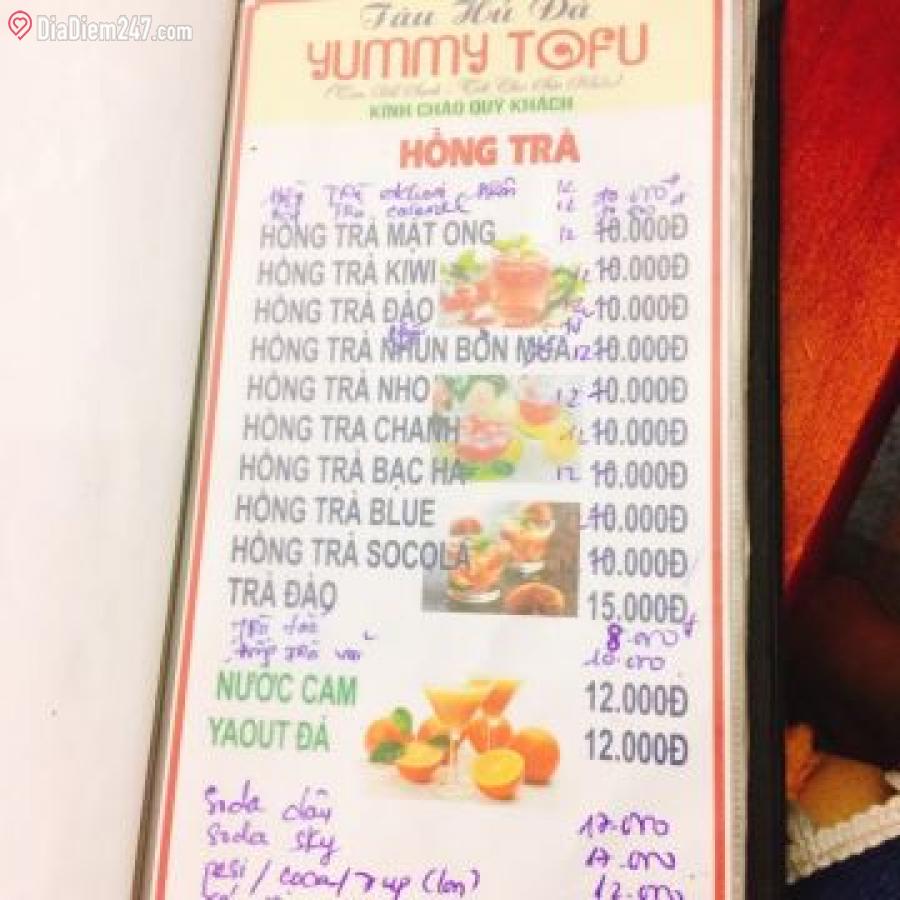 DiaDiem247.com
Tàu Hủ Đá
YUMMY TOFU
KÍNH CHÀO QUÝ KHÁCH
HỒNG TRÀ
12 10.000đ
caramel 12
HỒNG TRÀ MẬT ONG 12 10.000Đ
HỒNG TRÀ KIWI 12 10.000Đ
HỒNG TRÀ ĐÀO 12 10.000Đ
HỒNG TRÀ NHÚN BỐN MÙA 12 10.000Đ
HỒNG TRÀ NHO 12 10.000Đ
HỒNG TRÀ CHANH 12 10.000Đ
HỒNG TRÀ BẠC HÀ 12 10.000Đ
HỒNG TRÀ BLUE 10.000Đ
HỒNG TRÀ SOCOLA 10.000Đ
TRÀ ĐÀO 15.000Đ
8.000đ
10.000
NƯỚC CAM 12.000Đ
YAOUT ĐÁ 12.000Đ
Soda dâu 17.000
Soda sky 17.000
pesi / coca / 7up (lon) 12.000